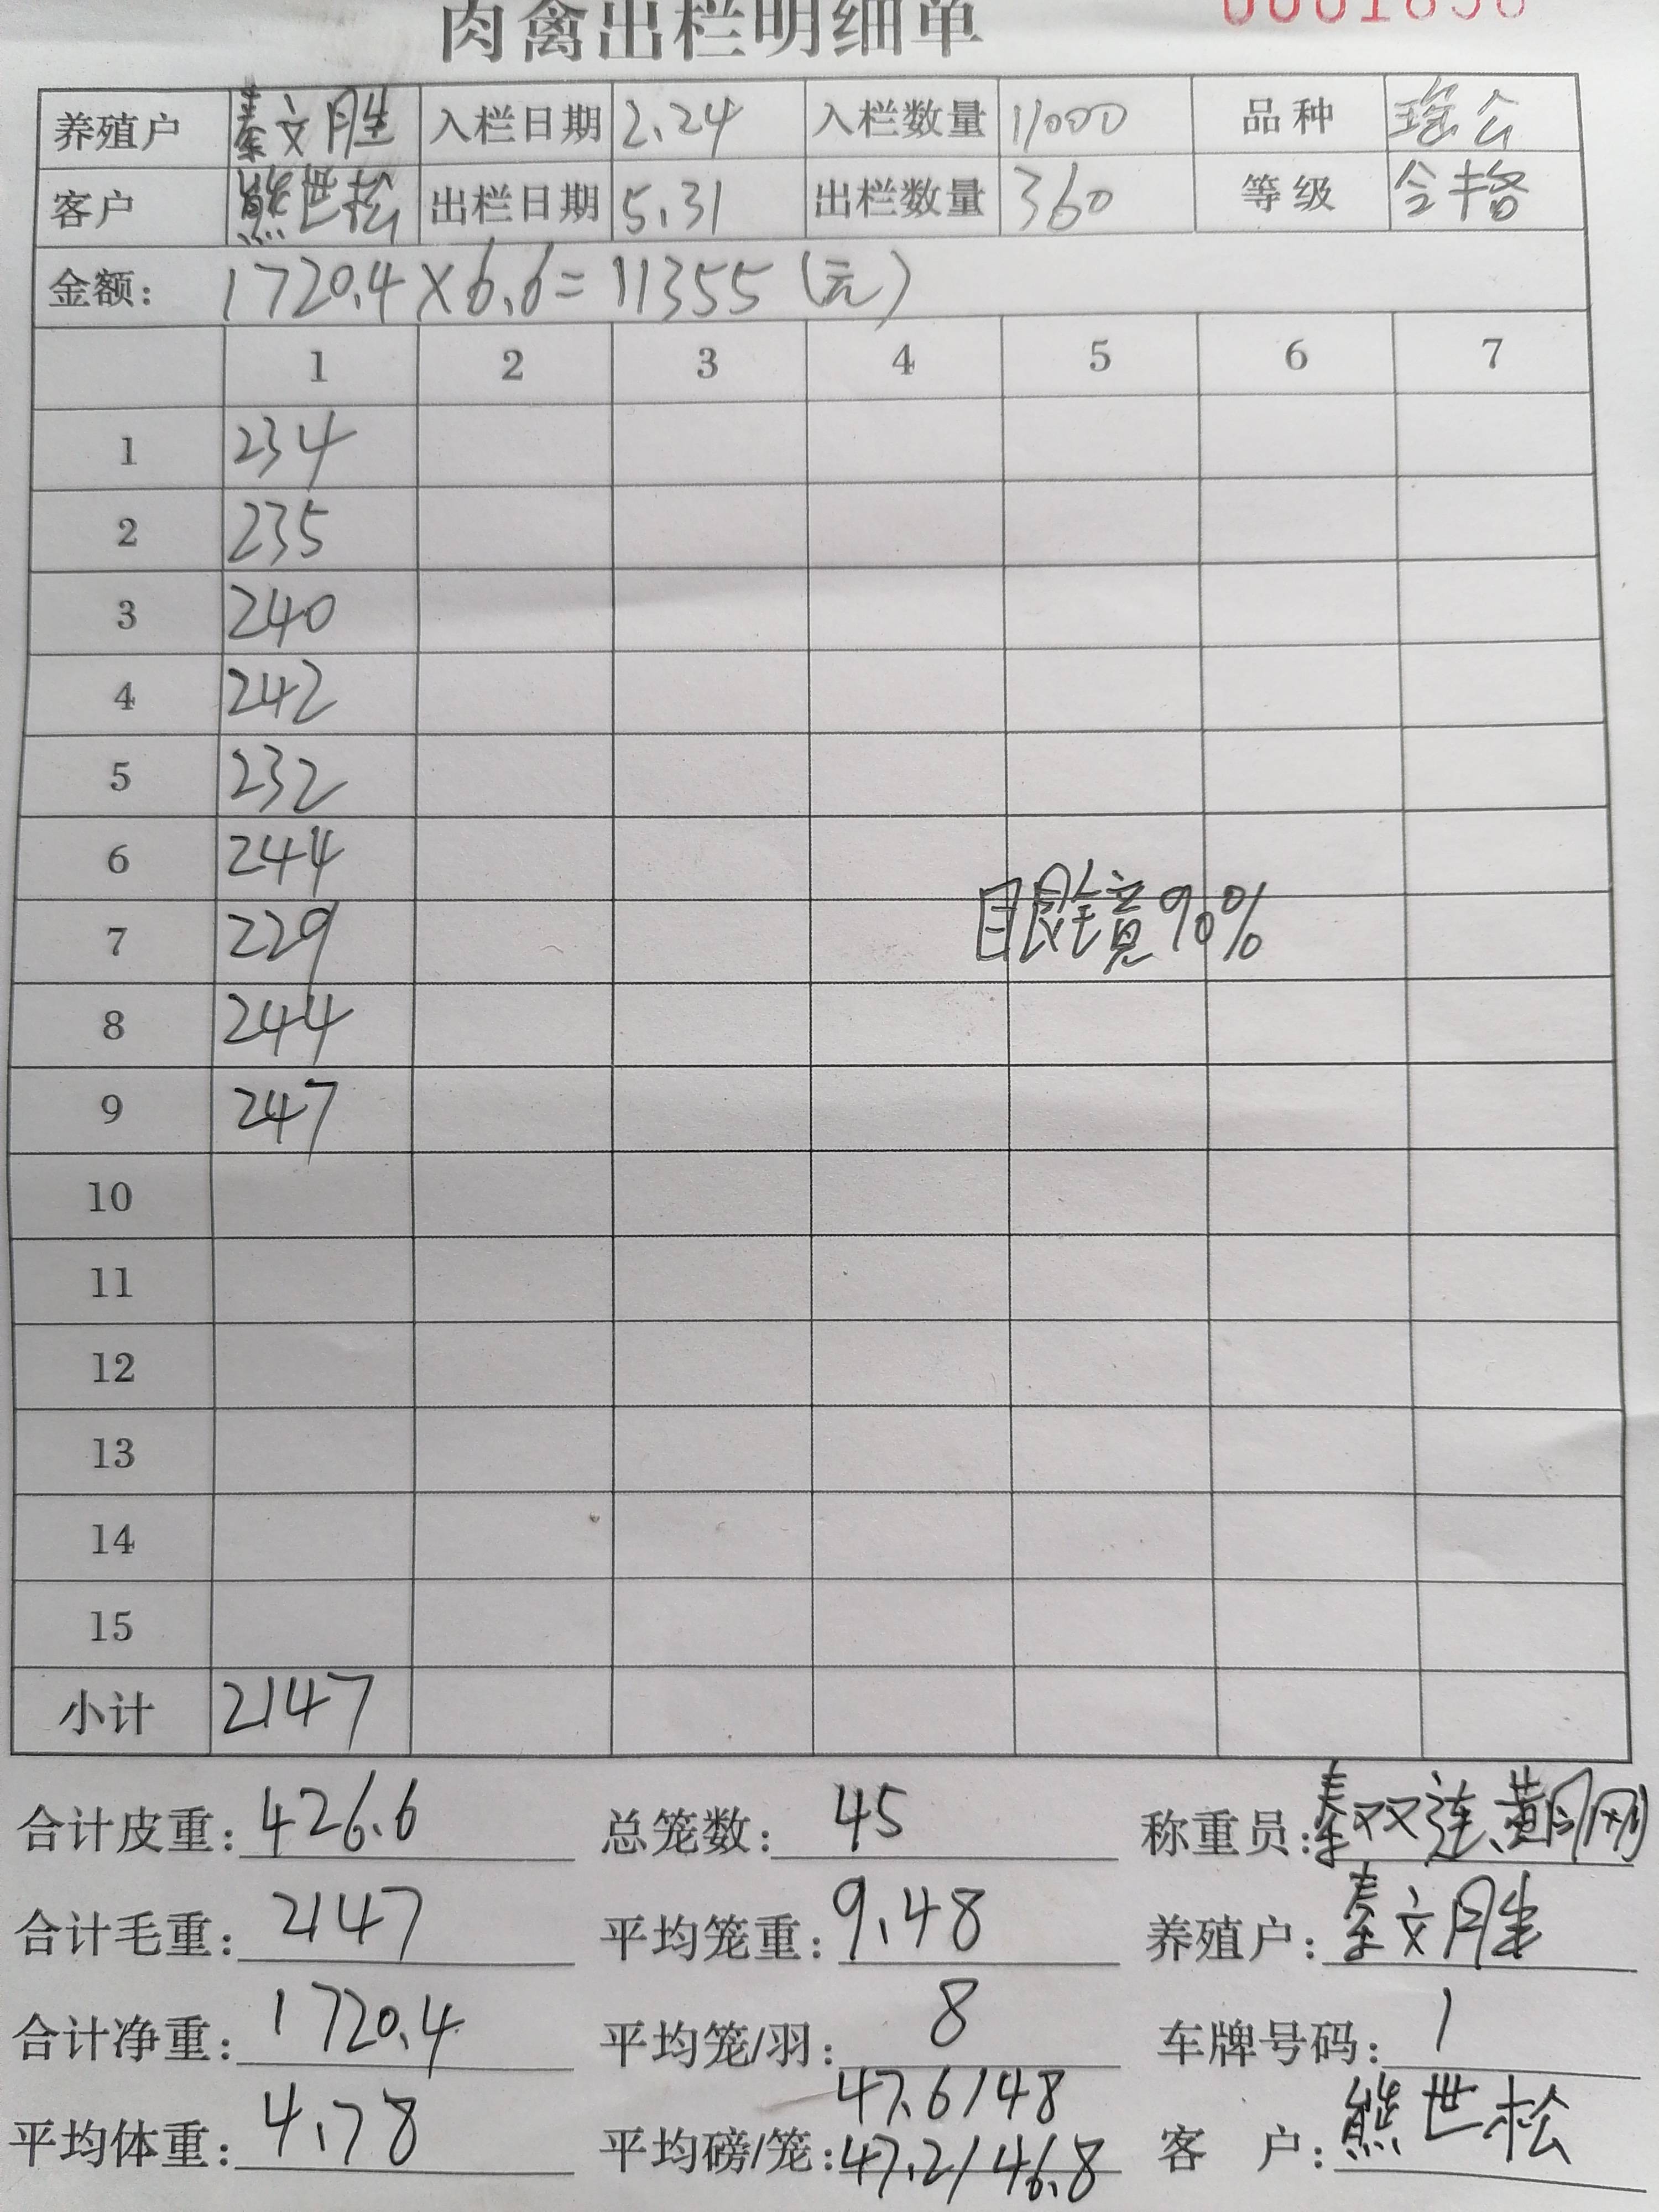 肉禽出栏明细单 0001856
养殖户 秦文胜 入栏日期 2.24 入栏数量 11000 品种 瑶公
客户 熊世松 出栏日期 5.31 出栏数量 360 等级 合格
金额： 1720.4×6.6=11355(元)
1 2 3 4 5 6 7
1 234
2 235
3 240
4 242
5 232
6 244
眼镜90%
7 229
8 244
9 247
10
11
12
13
14
15
小计 2147
合计皮重：426.6 总笼数：45 称重员：秦双连、黄刚
合计毛重：2147 平均笼重：9.48 养殖户：秦文胜
合计净重：1720.4 平均笼/羽：8 车牌号码：1
47.6/48
平均体重：4.78 平均磅/笼：47.2/46.8 客 户：熊世松